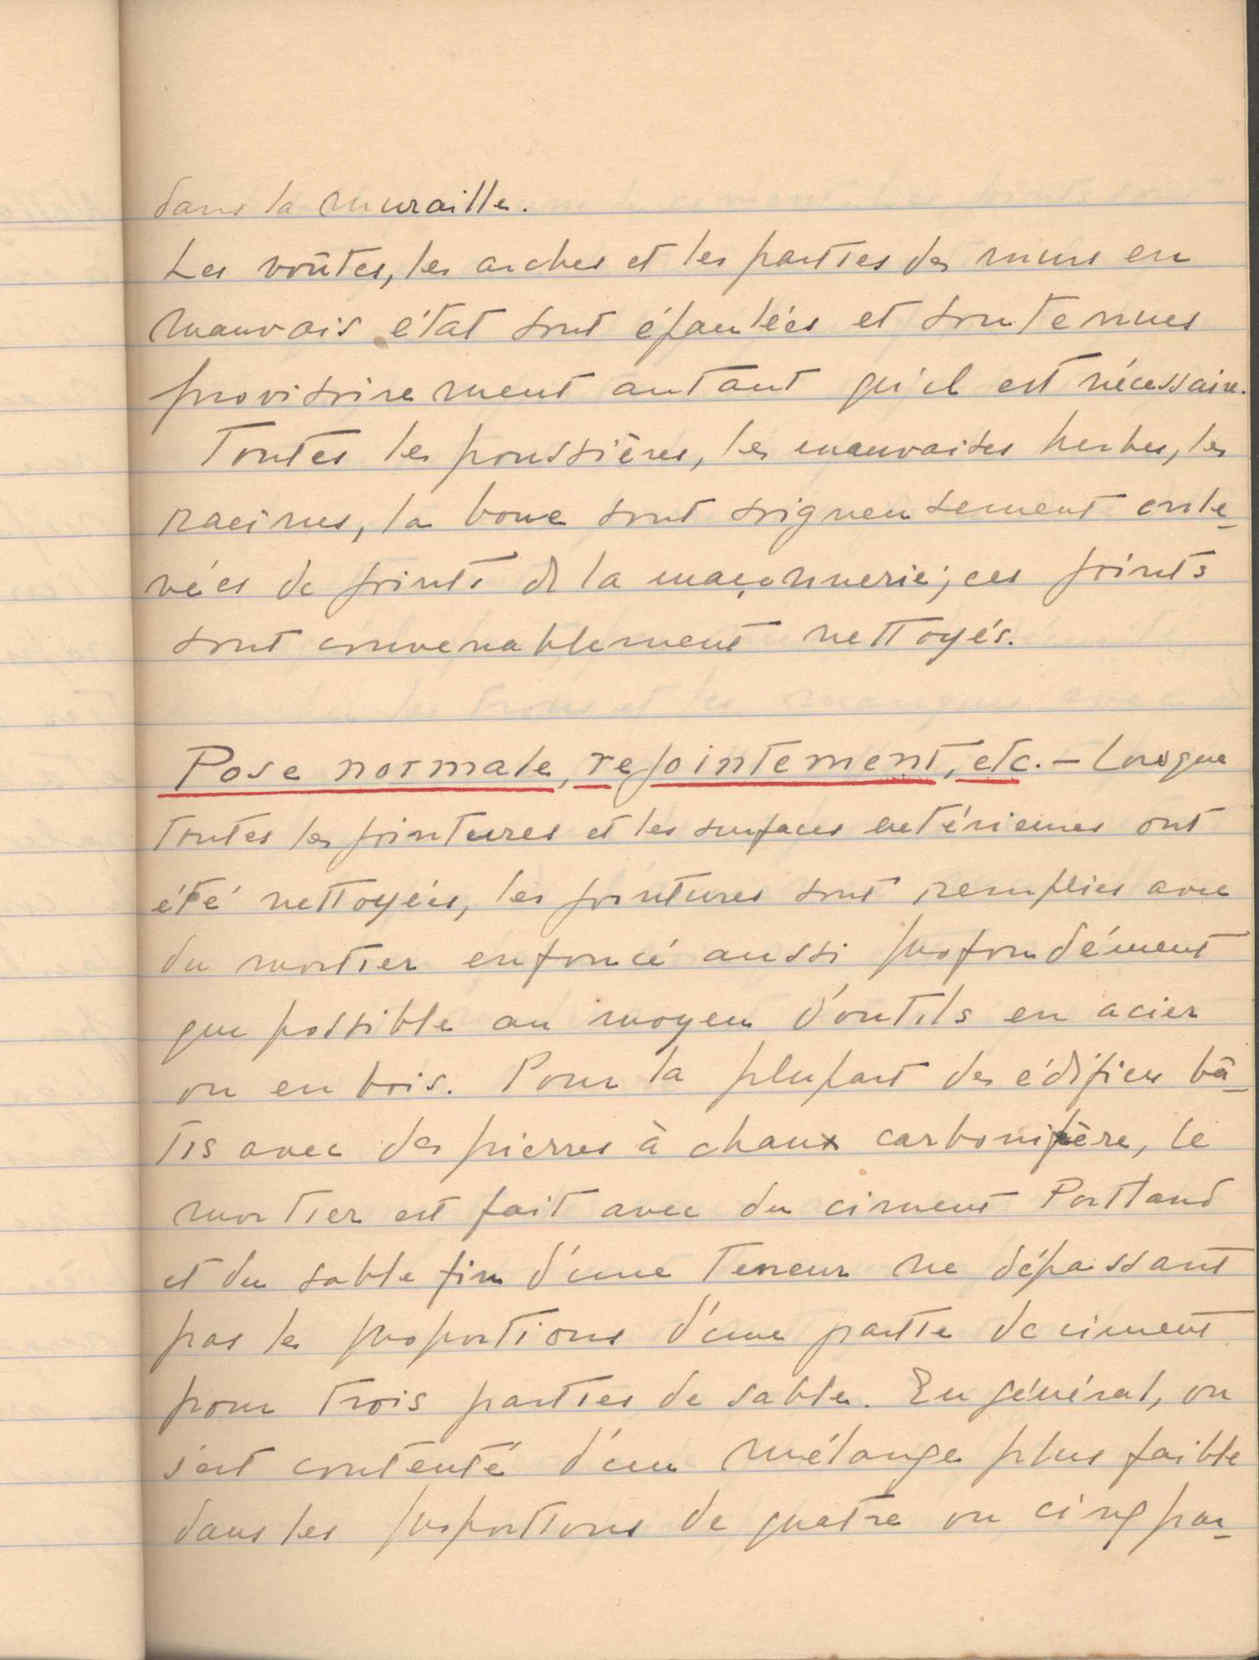 dans la muraille.
Les voûtes, les arches et les parties des murs en
mauvais état sont épaulées et soutenues
provisoirement autant qu'il est nécessaire.
Toutes les poussières, les mauvaises herbes, les
racines, la boue sont soigneusement enle-
vées de joints de la maçonnerie; ces joints
sont convenablement nettoyés.
Pose normale, rejointement, etc. — Lorsque
toutes les jointures et les surfaces extérieures ont
été nettoyées, les jointures sont remplies avec
du mortier enfoncé aussi profondément
que possible au moyen d'outils en acier
ou en bois. Pour la plupart des édifices bâ-
tis avec des pierres à chaux carbonifère, le
mortier est fait avec du ciment Portland
et du sable fin d'une teneur ne dépassant
pas les proportions d'une partie de ciment
pour trois parties de sable. En général, on
s'est contenté d'un mélange plus faible
dans les proportions de quatre ou cinq par-